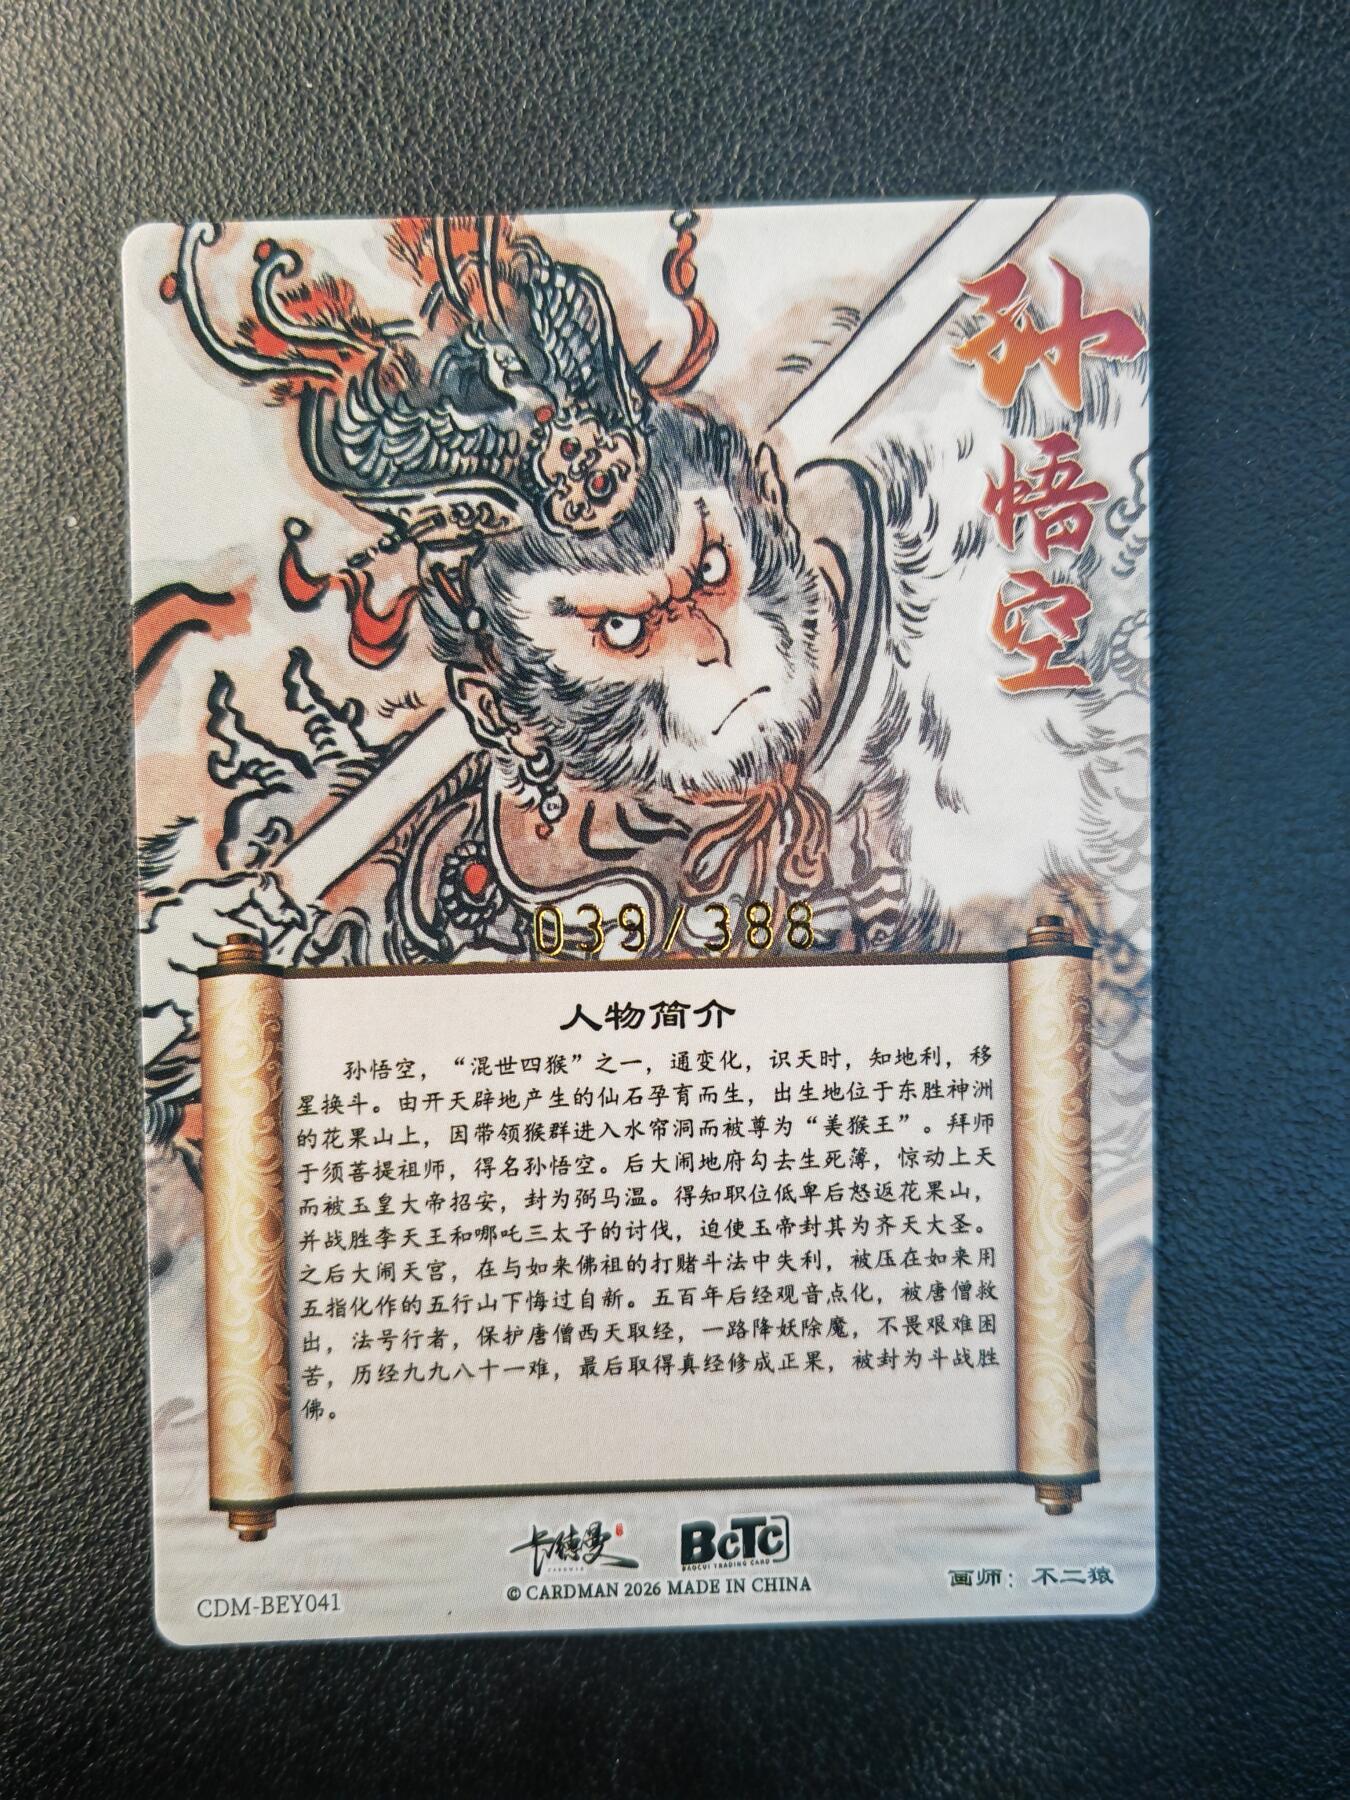 孙悟空
039/388
人物简介
孙悟空，“混世四猴”之一，通变化，识天时，知地利，移
星换斗。由开天辟地产生的仙石孕育而生，出生地位于东胜神洲
的花果山上，因带领猴群进入水帘洞而被尊为“美猴王”。拜师
于须菩提祖师，得名孙悟空。后大闹地府勾去生死簿，惊动上天
而被玉皇大帝招安，封为弼马温。得知职位低卑后怒返花果山，
并战胜李天王和哪吒三太子的讨伐，迫使玉帝封其为齐天大圣。
之后大闹天宫，在与如来佛祖的打赌斗法中失利，被压在如来用
五指化作的五行山下悔过自新。五百年后经观音点化，被唐僧救
出，法号行者，保护唐僧西天取经，一路降妖除魔，不畏艰难困
苦，历经九九八十一难，最后取得真经修成正果，被封为斗战胜
佛。
卡德曼
CARDMAN
BCTC
BAOCUI TRADING CARD
© CARDMAN 2026 MADE IN CHINA
CDM-BEY041
画师：不二猿